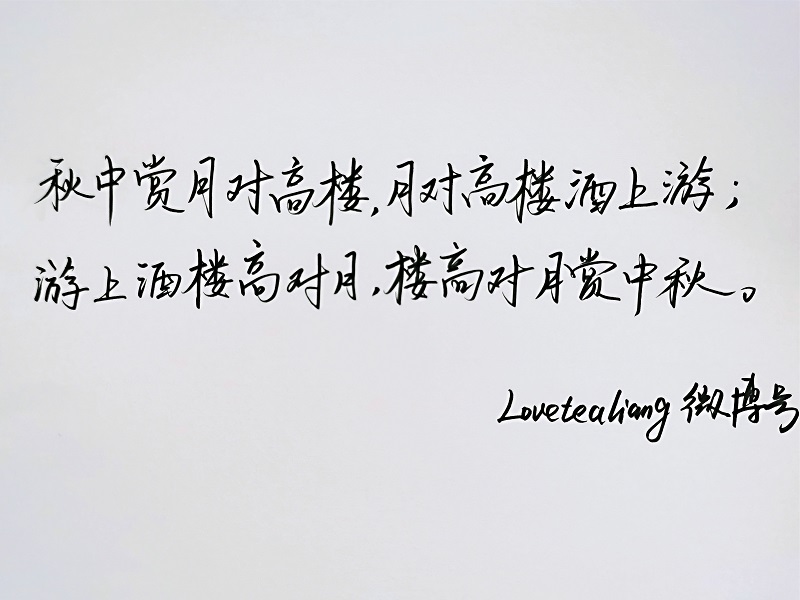 秋中赏月对高楼,月对高楼酒上游;
游上酒楼高对月,楼高对月赏中秋。
Lovetealiang 微博号